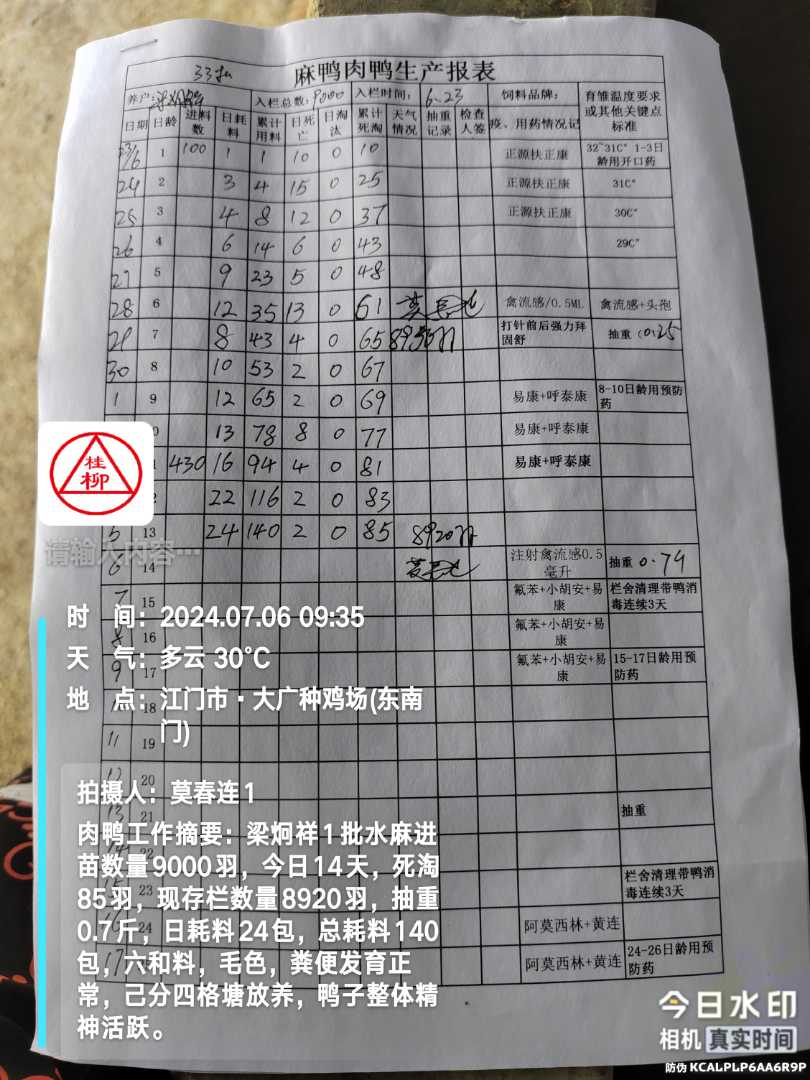 33批
麻鸭肉鸭生产报表
养户: 入栏总数: 9000 入栏时间: 6.23 饲料品牌: 育雏温度要求或其他关键点标准
日期 日龄 进料数 日耗料 累计用料 日死亡 日淘汰 累计死淘 天气情况 抽重记录 检查人签 疫、用药情况记
23/6 1 100 1 1 10 0 10 正源扶正康 32~31C° 1-3日龄用开口药
24 2 3 4 15 0 25 正源扶正康 31C°
25 3 4 8 12 0 37 正源扶正康 30C°
26 4 6 14 6 0 43 29C°
27 5 9 23 5 0 48
28 6 12 35 13 0 61 禽流感/0.5ML 禽流感+头孢
29 7 8 43 4 0 65 8956羽 打针前后强力拜固舒 抽重（0.25
30 8 10 53 2 0 67
1 9 12 65 2 0 69 易康+呼泰康 8-10日龄用预防药
13 78 8 0 77 易康+呼泰康
430 16 94 4 0 81 易康+呼泰康
22 116 2 0 83
5 13 24 140 2 0 85 8920羽
6 14 注射禽流感0.5毫升 抽重 0.74
7 15 氟苯+小胡安+易康 栏舍清理带鸭消毒连续3天
8 16 氟苯+小胡安+易康
9 17 氟苯+小胡安+易康 15-17日龄用预防药
18
11 19
12 20
13 21 抽重
23 栏舍清理带鸭消毒连续3天
16 24 阿莫西林+黄连
17 阿莫西林+黄连 24-26日龄用预防药
桂
柳
请输入内容…
时 间：2024.07.06 09:35
天 气：多云 30℃
地 点：江门市·大广种鸡场(东南
门)
拍摄人：莫春连1
肉鸭工作摘要：梁炯祥1批水麻进
苗数量9000羽，今日14天，死淘
85羽，现存栏数量8920羽，抽重
0.7斤，日耗料24包，总耗料140
包，六和料，毛色，粪便发育正
常，己分四格塘放养，鸭子整体精
神活跃。
今日水印
相机 真实时间
防伪 KCALPLP6AA6R9P